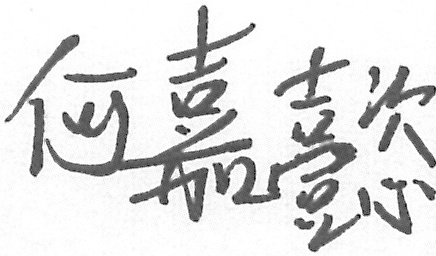 何嘉懿